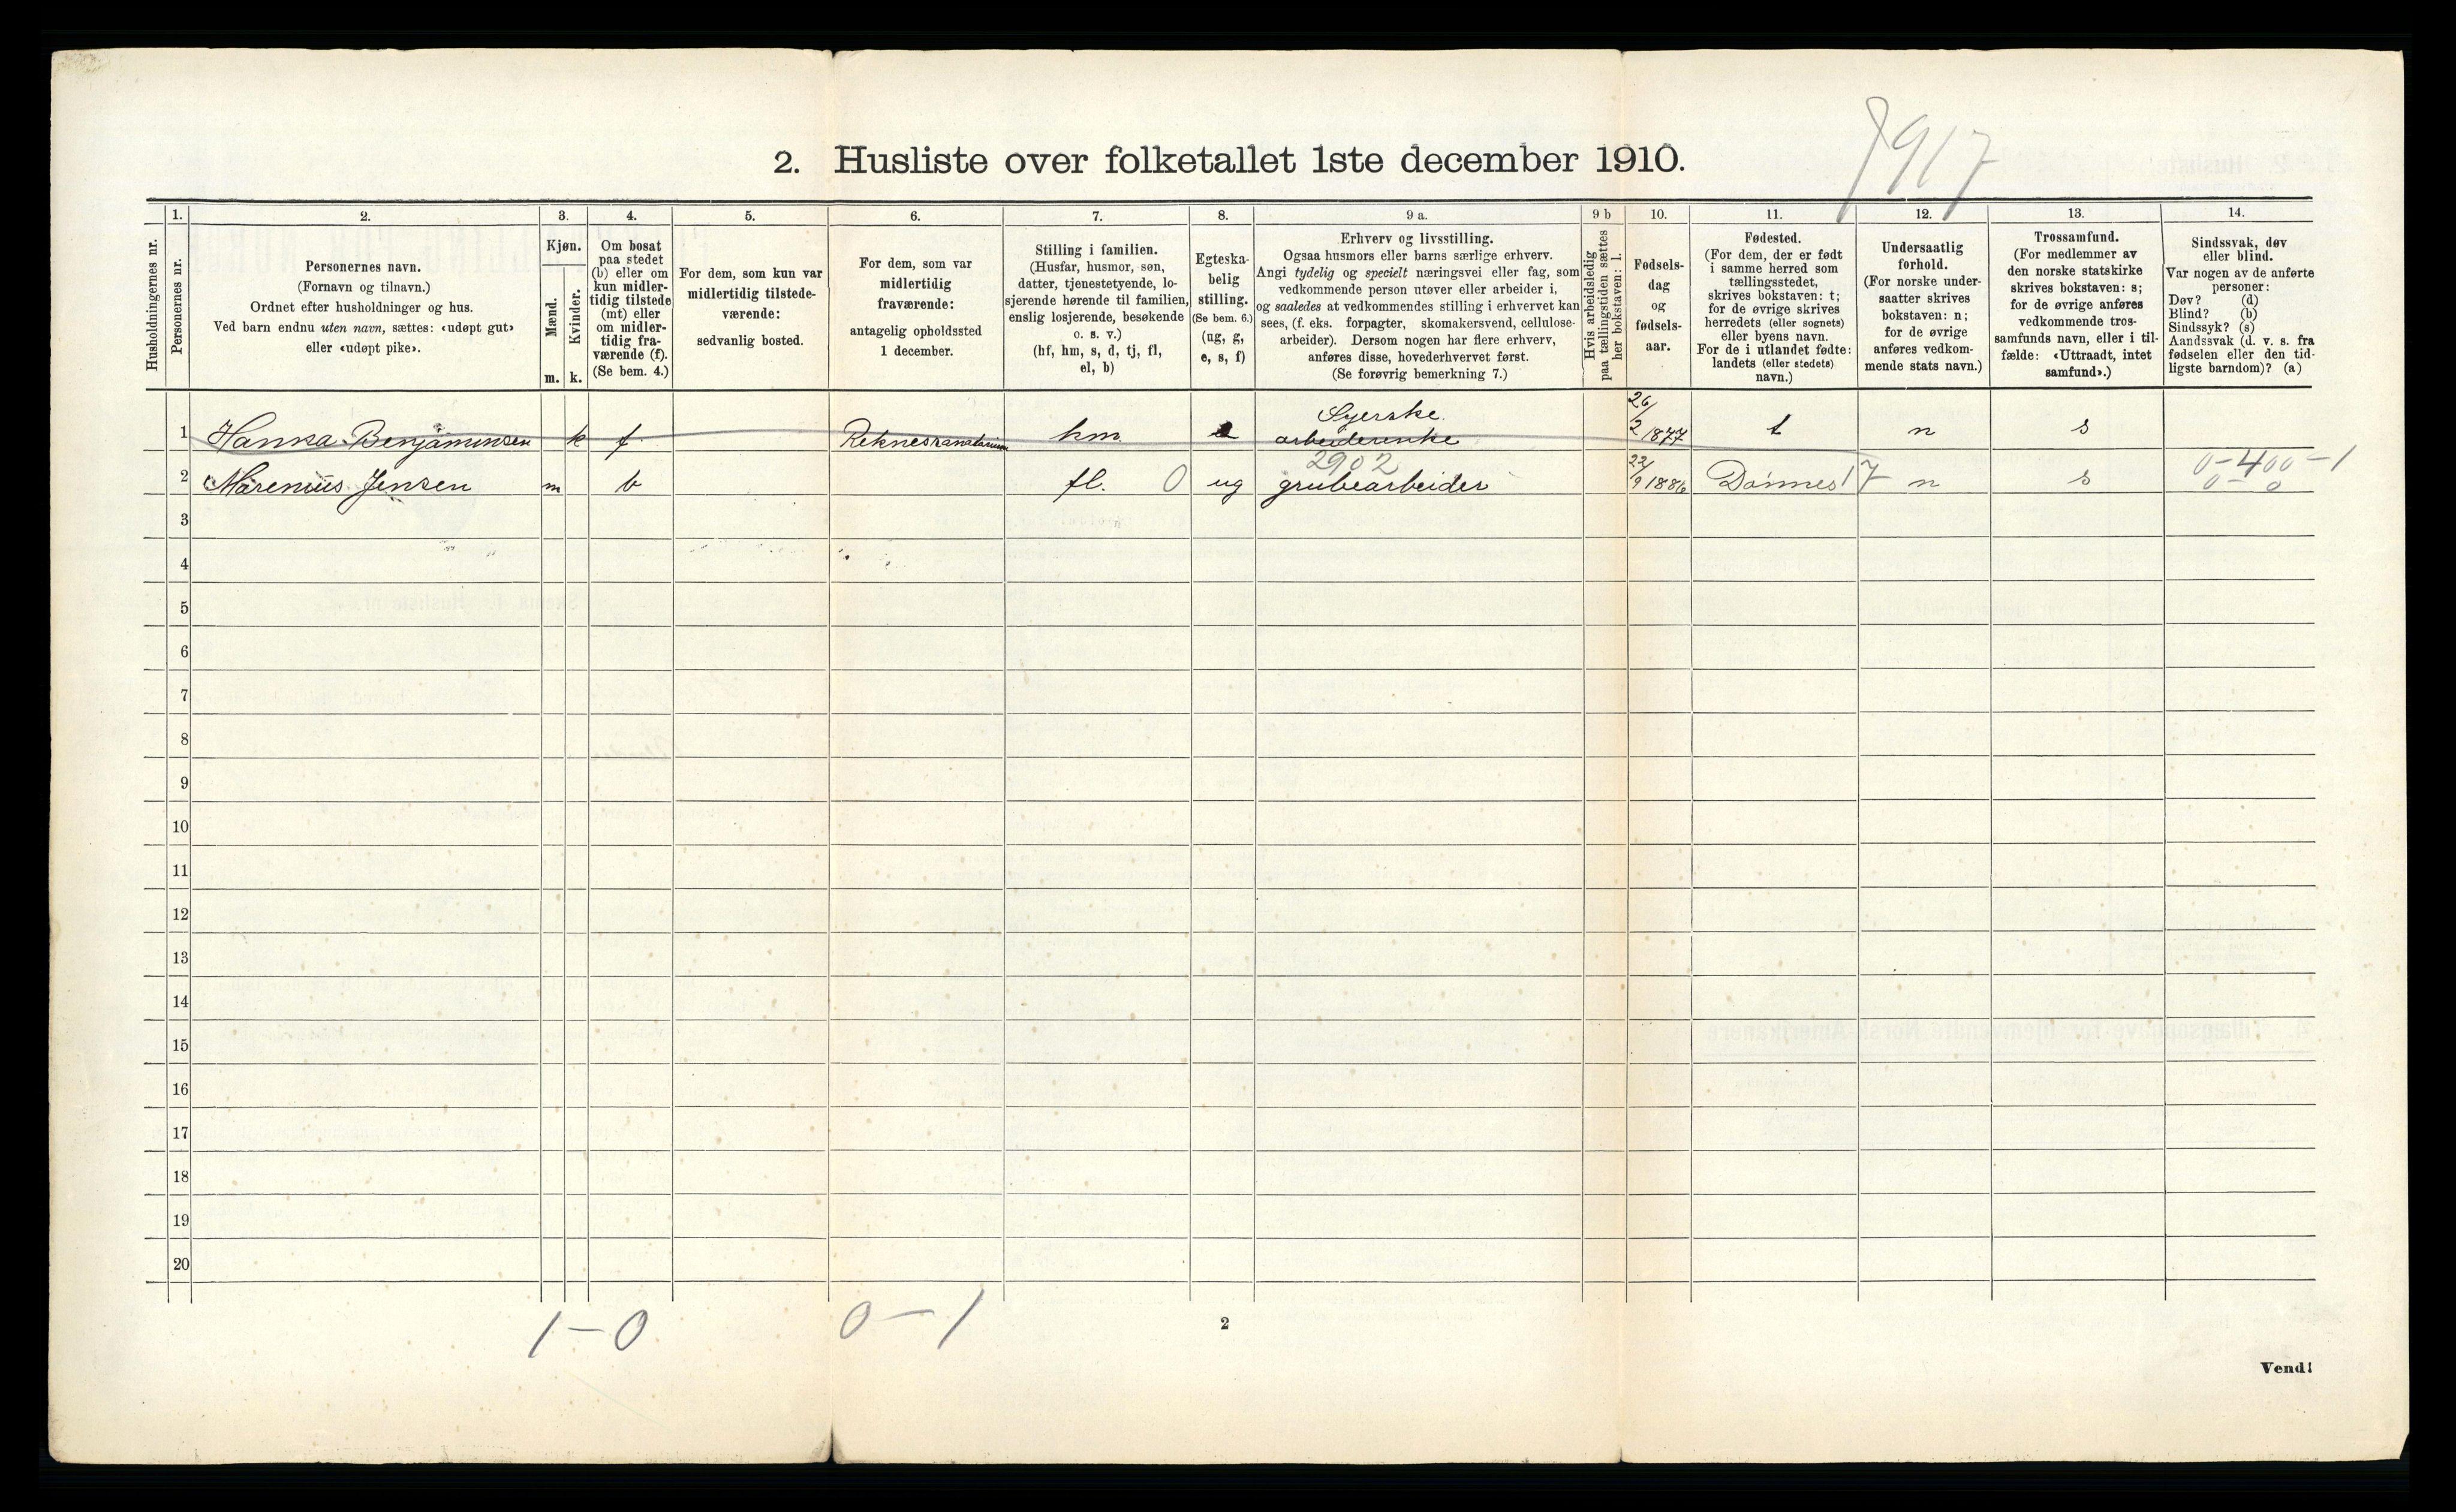 7917
2. Husliste over folketallet 1ste december 1910.
Husholdningernes nr.
1.
Personernes nr.
2.
Personernes navn.
(Fornavn og tilnavn.)
Ordnet efter husholdninger og hus.
Ved barn endnu uten navn, sættes: «udøpt gut»
eller «udøpt pike».
3.
Kjøn.
Mænd.
Kvinder.
m. k.
4.
Om bosat
paa stedet
(b) eller om
kun midler-
tidig tilstede
(mt) eller
om midler-
tidig fra-
værende (f).
(Se bem. 4.)
5.
For dem, som kun var
midlertidig tilstede-
værende:
sedvanlig bosted.
6.
For dem, som var
midlertidig
fraværende:
antagelig opholdssted
1 december.
7.
Stilling i familien.
(Husfar, husmor, søn,
datter, tjenestetyende, lo-
sjerende hørende til familien,
enslig losjerende, besøkende
o. s. v.)
(hf, hm, s, d, tj, fl,
el, b)
8.
Egteska-
belig
stilling.
(Se bem. 6.)
(ug, g,
e, s, f)
9 a.
Erhverv og livsstilling.
Ogsaa husmors eller barns særlige erhverv.
Angi tydelig og specielt næringsvei eller fag, som
vedkommende person utøver eller arbeider i,
og saaledes at vedkommendes stilling i erhvervet kan
sees, (f. eks. forpagter, skomakersvend, cellulose-
arbeider). Dersom nogen har flere erhverv,
anføres disse, hovederhvervet først.
(Se forøvrig bemerkning 7.)
9 b
Hvis arbeidsledig
paa tællingstiden sættes
her bokstaven: l.
10.
Fødsels-
dag
og
fødsels-
aar.
11.
Fødested.
(For dem, der er født
i samme herred som
tællingsstedet,
skrives bokstaven: t;
for de øvrige skrives
herredets (eller sognets)
eller byens navn.
For de i utlandet fødte:
landets (eller stedets)
navn.)
12.
Undersaatlig
forhold.
(For norske under-
saatter skrives
bokstaven: n;
for de øvrige
anføres vedkom-
mende stats navn.)
13.
Trossamfund.
(For medlemmer av
den norske statskirke
skrives bokstaven: s;
for de øvrige anføres
vedkommende tros-
samfunds navn, eller i til-
fælde: «Uttraadt, intet
samfund».)
14.
Sindssvak, døv
eller blind.
Var nogen av de anførte
personer:
Døv? (d)
Blind? (b)
Sindssyk? (s)
Aandssvak (d. v. s. fra
fødselen eller den tid-
ligste barndom)? (a)
1 Hanna Benjaminsen k f Reknessanatorium hm e Syerske arbeiderenke 26/2 1877 t n s
2902 0-400-1
2 Marenius Jensen m b fl. 0 ug grubearbeider 22/9 1886 Dønnes 17 n s 0-0
3
4
5
6
7
8
9
10
11
12
13
14
15
16
17
18
19
20
1-0 0-1
2
Vend!